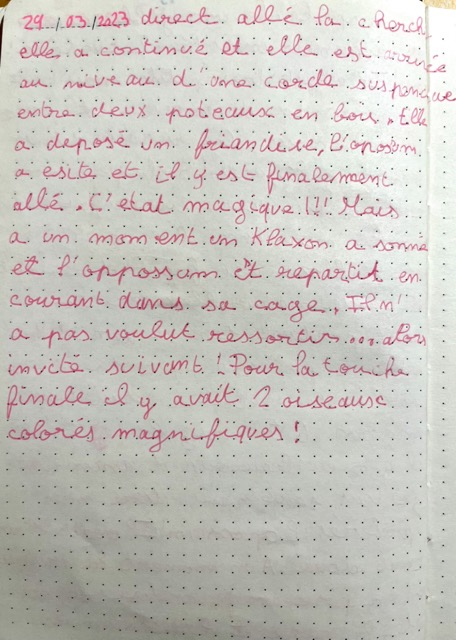 29/03/2023 direct allé la cherch
elle a continué et elle est arrivée
au niveau d'une corde suspendue
entre deux poteaux en bois. Elle
a déposé un friandise, l'oposum
a ésité et il y est finalement
allé. C'était magique!!! Mais
a un moment un Klaxon a sonné
et l'oppossum et repartit en
courant dans sa cage, Il n'
a pas voulut ressortir... alors
invité suivant! Pour la touche
finale il y avait 2 oiseaux
colorés magnifiques!